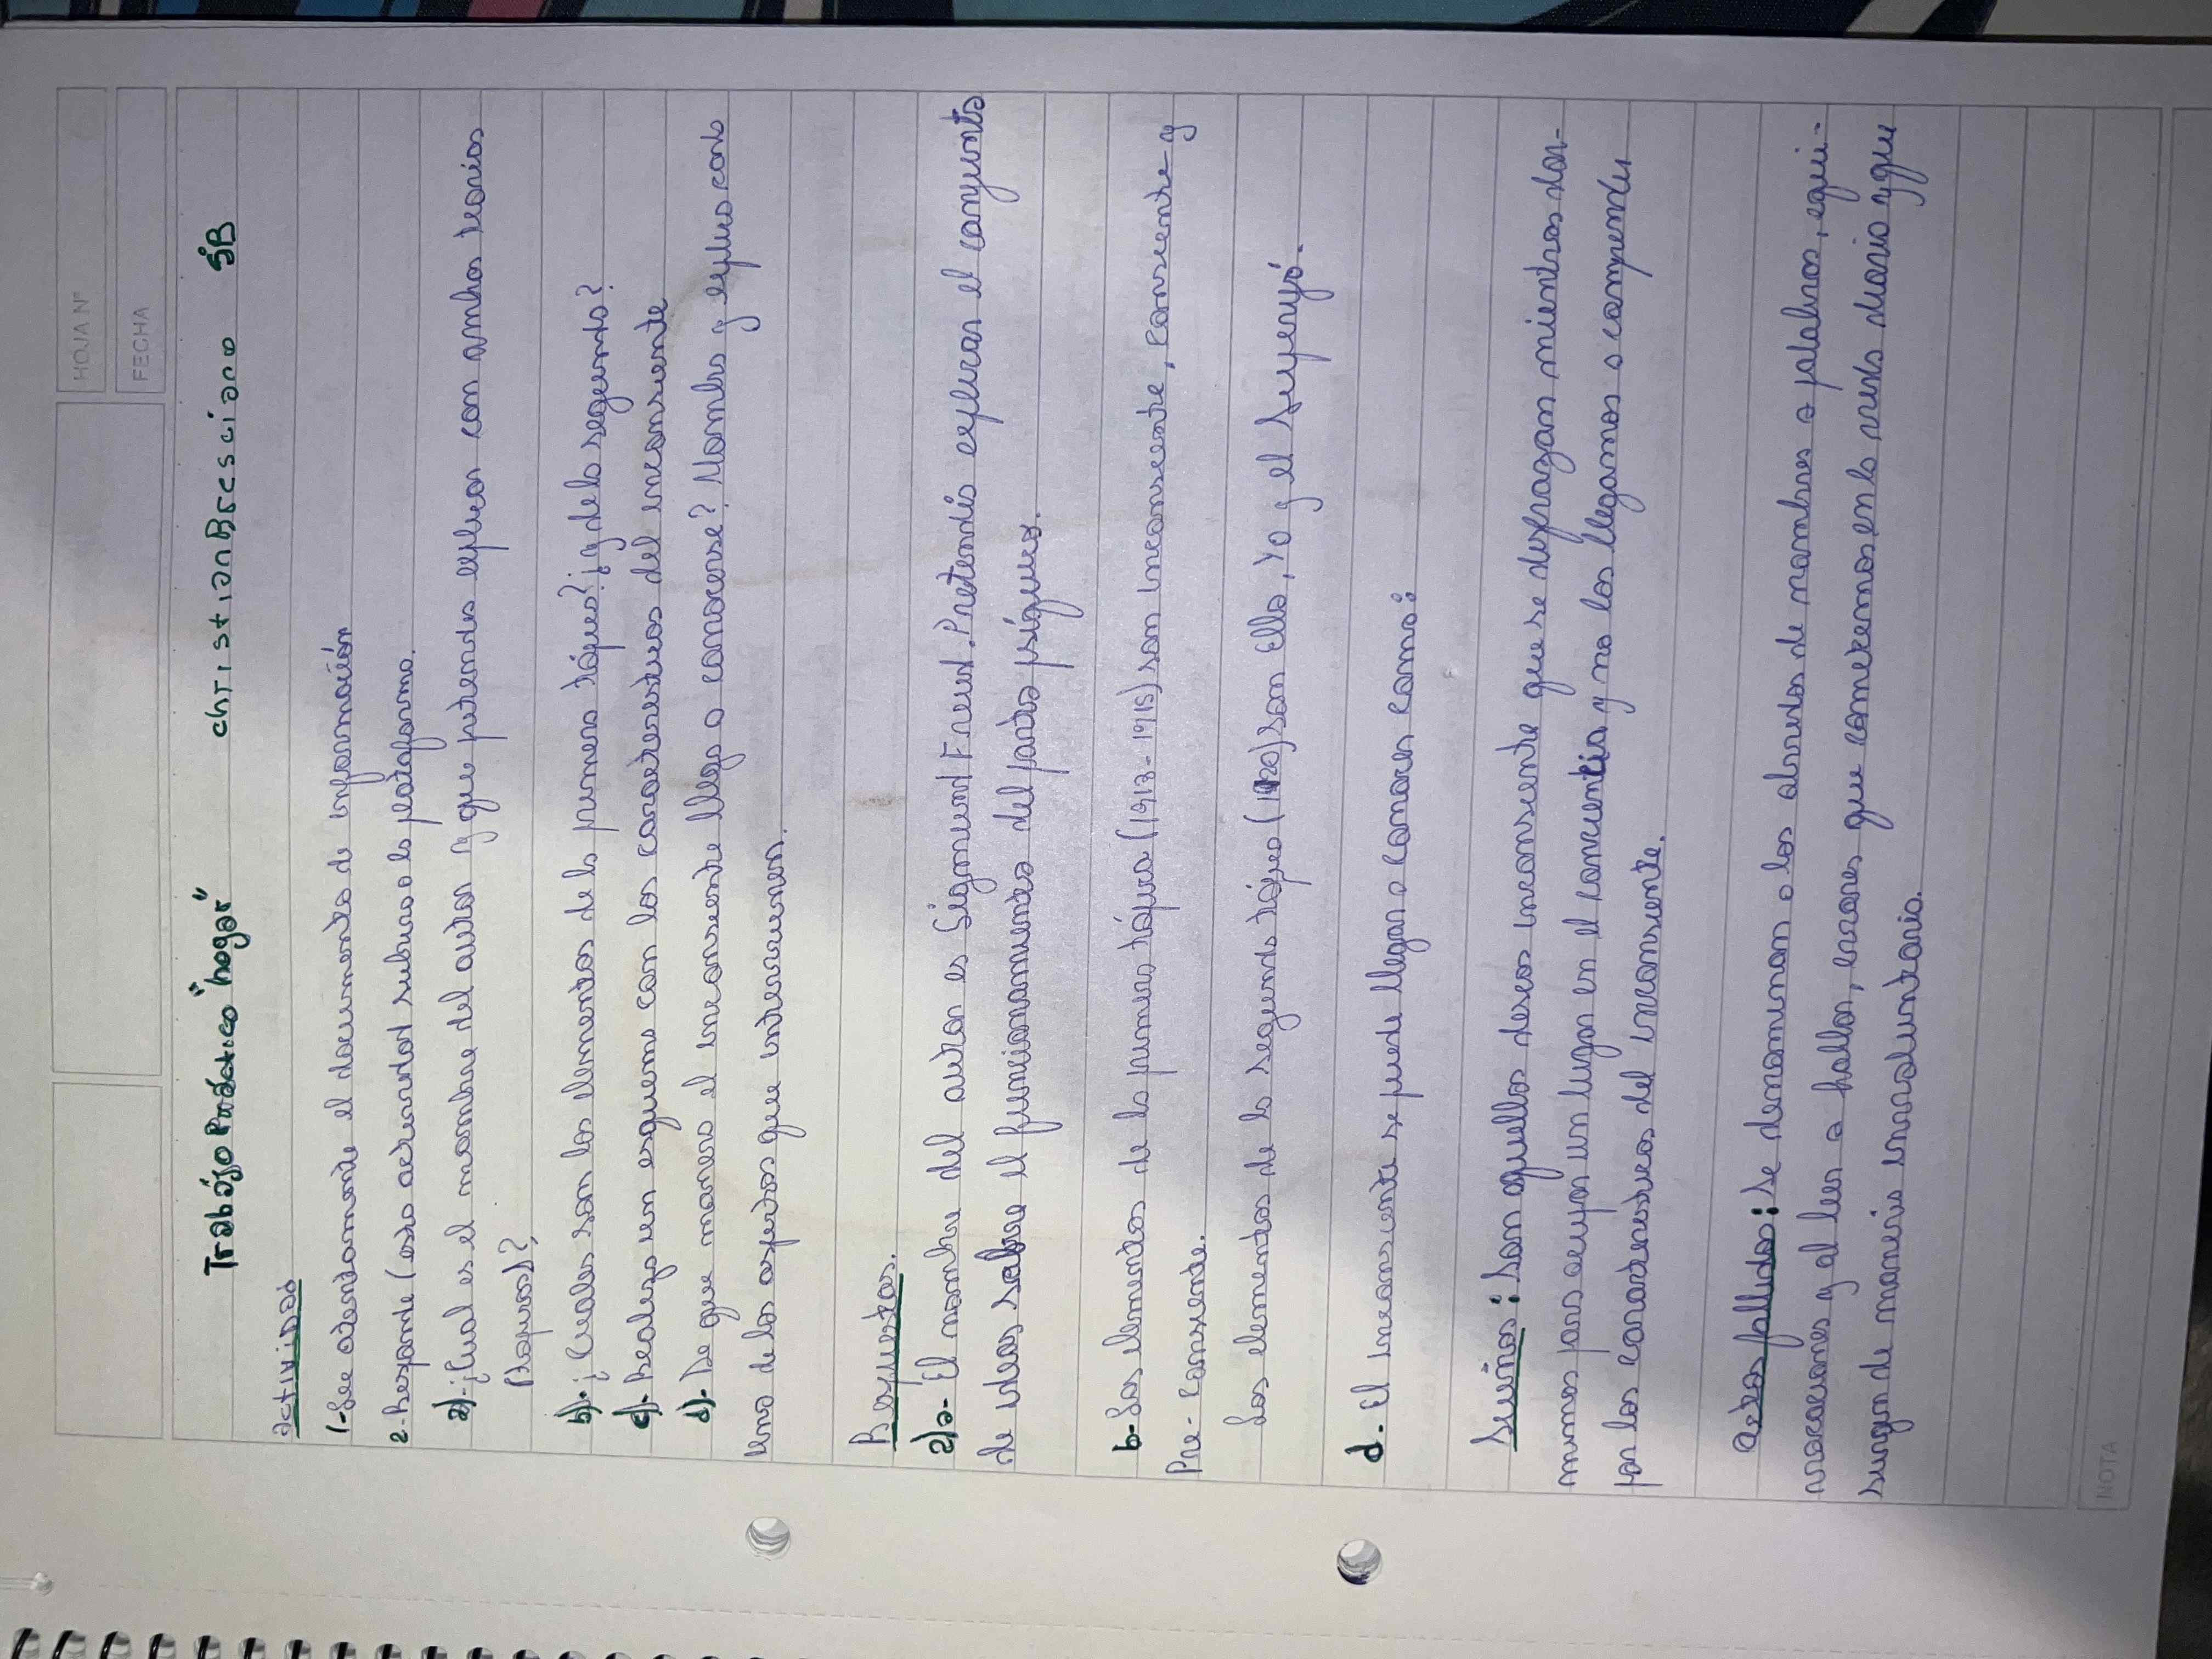 HOJA N°
FECHA
Trabajo Práctico "hogar" christian Bresciano 5B
actividad
1- Lee atentamente el documento de información
2- Responde (esta actividad subirla a la plataforma.
a)- ¿Cual es el nombre del autor y que pretendes explicar con ambas teorias
(tópicas)?
b)- ¿Cuales son los elementos de la primera tópica? ¿y de la segunda?
c)- Realiza un esquema con las caracteristicas del inconsciente
d)- De que manera el inconsciente llega a conocerse? Nombra y explica cada
una de los aspectos que intervienen.
Respuestas.
2)a- El nombre del autor es Sigmund Freud. Pretendía explicar el conjunto
de ideas sobre el funcionamiento del parato psíquico.
b- Los elementos de la primera tópica (1913-1915) son inconsciente, consciente y
Pre-consciente.
Los elementos de la segunda tópica (1920) son Ello, Yo y el Superyó.
d- El inconsciente se puede llegar a conocer como:
Sueños: Son aquellos deseos inconsciente que se disfrazan mientras dor-
mimos para ocupar un lugar en el conciencia y no los llegamos a comprender
por las caracteristicas del inconsciente.
actos fallidos: Se denominan a los olvidos de nombres o palabras, equi-
vocaciones y al leer o hablar, errores que cometemos en la vida diaria y que
surgen de manera involuntaria.
NOTA